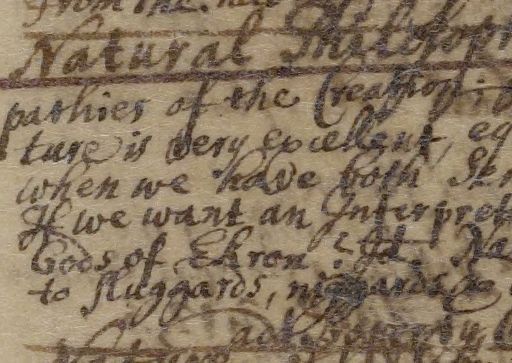 From the
Natural Philosoph
pathies of the Creation;
ture is very excellent, eq
when we have both Scr
If we want an Interpret
Gods of Ekron? Id. Na
to sluggards, niggards